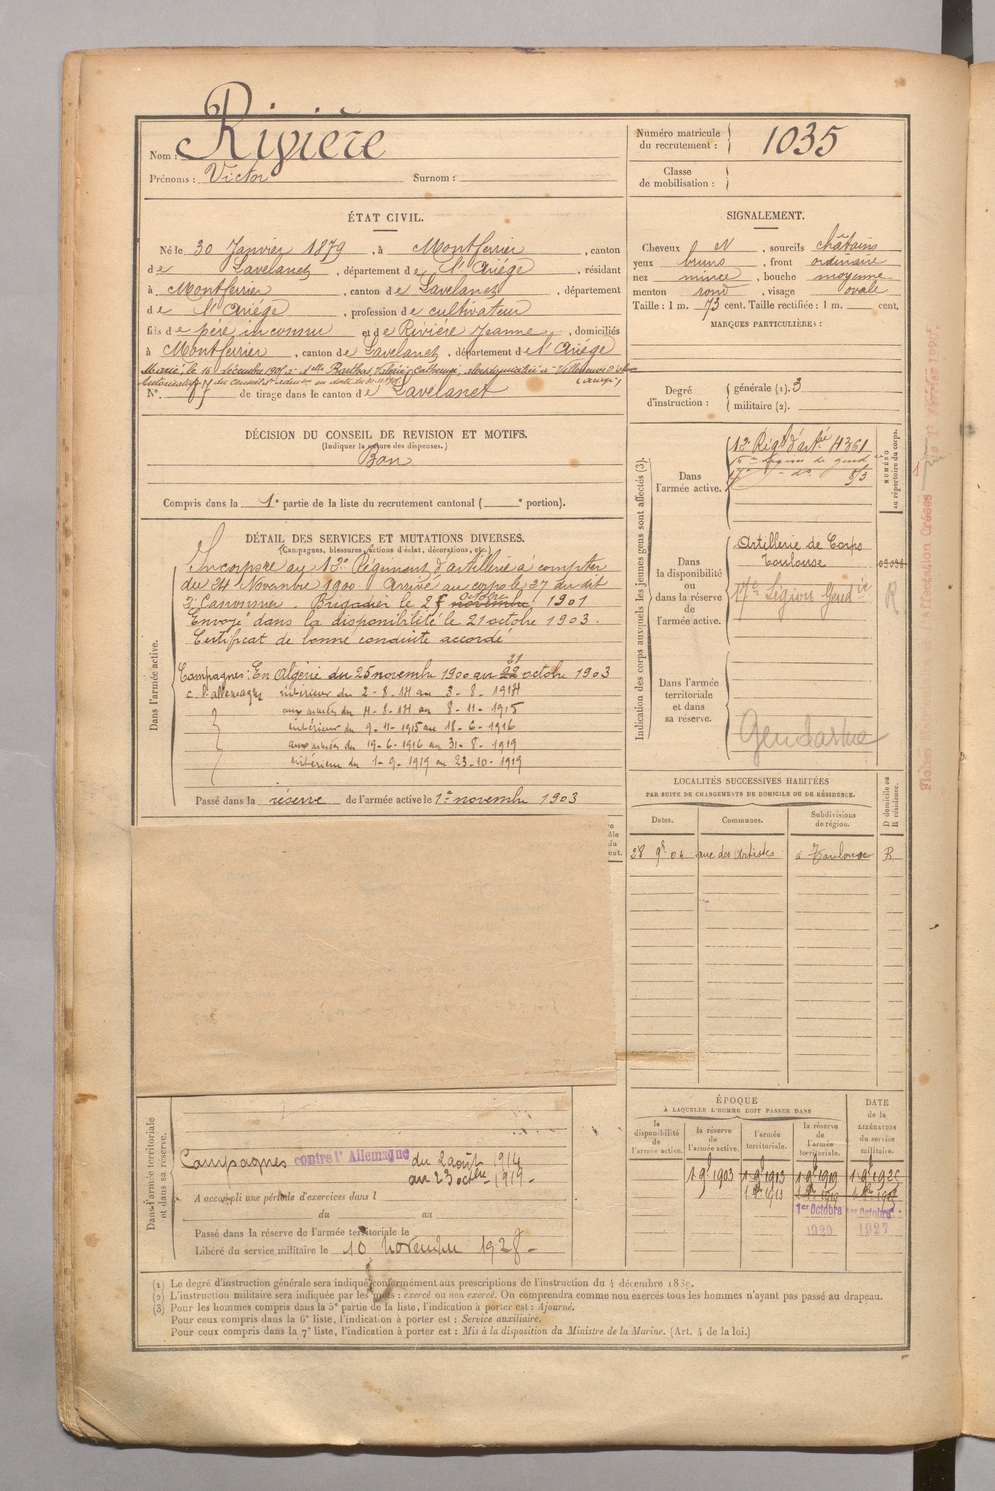 Nom : Rivière
Prénoms : Victor Surnom :
Numéro matricule du recrutement : 1035
Classe de mobilisation :
ÉTAT CIVIL.
Né le 30 Janvier 1879, à Montferrier, canton
de Lavelanet, département de l'Ariége, résidant
à Montferrier, canton de Lavelanet, département
de l'Ariége, profession de cultivateur
fils de père inconnu et de Rivière Jeanne, domiciliés
à Montferrier, canton de Lavelanet, département de l'Ariége
Marié, le 16 décembre
N°. de tirage dans le canton de Lavelanet
SIGNALEMENT.
Cheveux N, sourcils châtains
yeux bruns, front ordinaire
nez mince, bouche moyenne
menton rond, visage ovale
Taille : 1 m. 73 cent. Taille rectifiée : 1 m. cent.
MARQUES PARTICULIÈRES :
Degré d'instruction : générale (1). 3
militaire (2).
DÉCISION DU CONSEIL DE REVISION ET MOTIFS.
(Indiquer la nature des dispenses.)
Bon
Compris dans la 1e partie de la liste du recrutement cantonal ( e portion).
DÉTAIL DES SERVICES ET MUTATIONS DIVERSES.
(Campagnes, blessures, actions d'éclat, décorations, etc.)
Dans l'armée active.
Incorporé au 13e Régiment d'artillerie à compter
du 24 Novembre 1900 Arrivé au corps le 27 du dit
2e Canonnier. Brigadier le 2 novembre octobre 1901
Envoyé dans la disponibilité le 21 octobre 1903.
Certificat de bonne conduite accordé
Campagnes : En Algérie du 25 novembre 1900 au 22 21 octobre 1903
c. l'allemagne intérieur du 2-8-14 au 3-8-1914
aux armées du 4-8-14 au 8-11-1915
intérieur du 9-11-1915 au 18-6-1916
aux armées du 19-6-1916 au 31-8-1919
intérieur du 1-9-1919 au 23-10-1919
Passé dans la réserve de l'armée active le 1er novembre 1903
Indication des corps auxquels les jeunes gens sont affectés (3).
NUMÉRO au répertoire du corps.
Dans l'armée active.
13e Régt d'artie 4361
Dans la disponibilité ou dans la réserve de l'armée active.
Artillerie de Corps
Toulouse
17e Légion Gendie
R
Dans l'armée territoriale et dans sa réserve.
Gendarme
LOCALITÉS SUCCESSIVES HABITÉES
PAR SUITE DE CHANGEMENTS DE DOMICILE OU DE RÉSIDENCE.
D domicile ou R résidence.
Dates. Communes. Subdivisions de région.
28 9bre 04 rue des Artistes à Toulouse R
Dans l'armée territoriale et dans sa réserve.
Campagnes contre l'Allemagne du 2 août 1914
au 23 octbre 1919
A accompli une période d'exercices dans l
du au
Passé dans la réserve de l'armée territoriale le
Libéré du service militaire le 10 Novembre 1928
ÉPOQUE
À LAQUELLE L'HOMME DOIT PASSER DANS
DATE de la LIBÉRATION du service militaire.
la disponibilité de l'armée active. la réserve de l'armée active. l'armée territoriale. la réserve de l'armée territoriale.
1 9bre 1903 1 9bre 1913 1 9bre 1919 1 9bre 1925
1er Octobre 1er Octobre
1920 1927
(1) Le degré d'instruction générale sera indiqué conformément aux prescriptions de l'instruction du 4 décembre 1889.
(2) L'instruction militaire sera indiquée par les mots : exercé ou non exercé. On comprendra comme non exercés tous les hommes n'ayant pas passé au drapeau.
(3) Pour les hommes compris dans la 5e partie de la liste, l'indication à porter est : Ajourné.
Pour ceux compris dans la 6e liste, l'indication à porter est : Service auxiliaire.
Pour ceux compris dans la 7e liste, l'indication à porter est : Mis à la disposition du Ministre de la Marine. (Art. 4 de la loi.)